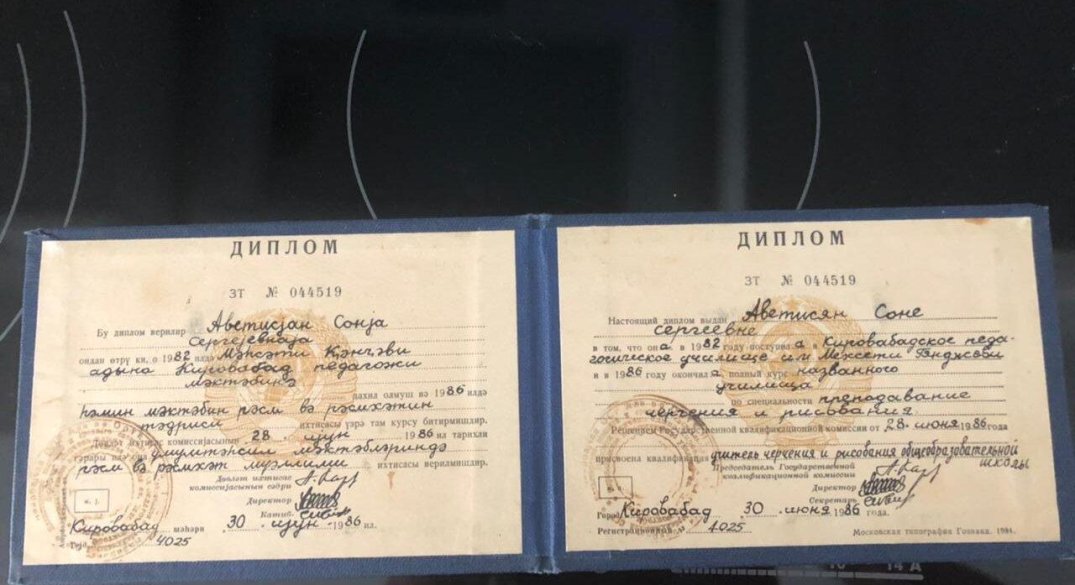 ДИПЛОМ
ЗТ № 044519
Бу диплом верилир Аветисјан Сонја
Серҝејевнаја
ондан өтрү ки, о 1982 илдә Мәһсәти Ҝәнҹәви
адына Кировабад педагожи
мәктәбинә
дахил олмуш вә 1986 илдә
һәмин мәктәбин рәсм вә рәсмхәтин
тәдриси ихтисасы үзрә там курсу битирмишдир.
Дөвләт ихтисас комиссијасынын 28 ијун 1986 ил тарихли
гәрары илә она үмумтәһсил мәктәбләриндә
рәсм вә рәсмхәт мүәллими ихтисасы верилмишдир.
Дөвләт ихтисас
комиссијасынын сәдри
Директор
Катиб
М. Ј.
Кировабад шәһәри 30 ијун 1986 ил.
4025
ДИПЛОМ
ЗТ № 044519
Настоящий диплом выдан Аветисян Соне
Сергеевне
в том, что она в 1982 году поступила в Кировабадское педа-
гогическое училище им. Мехсети Гянджеви
и в 1986 году окончила полный курс названного
училища
по специальности преподавание
черчения и рисования.
Решением Государственной квалификационной комиссии от 28 июня 1986 года
присвоена квалификация учитель черчения и рисования общеобразовательной
школы
Председатель Государственной
квалификационной комиссии
Директор
Секретарь
Город Кировабад 30 июня 1986 года.
Регистрационный № 4025
Московская типография Гознака. 1984.